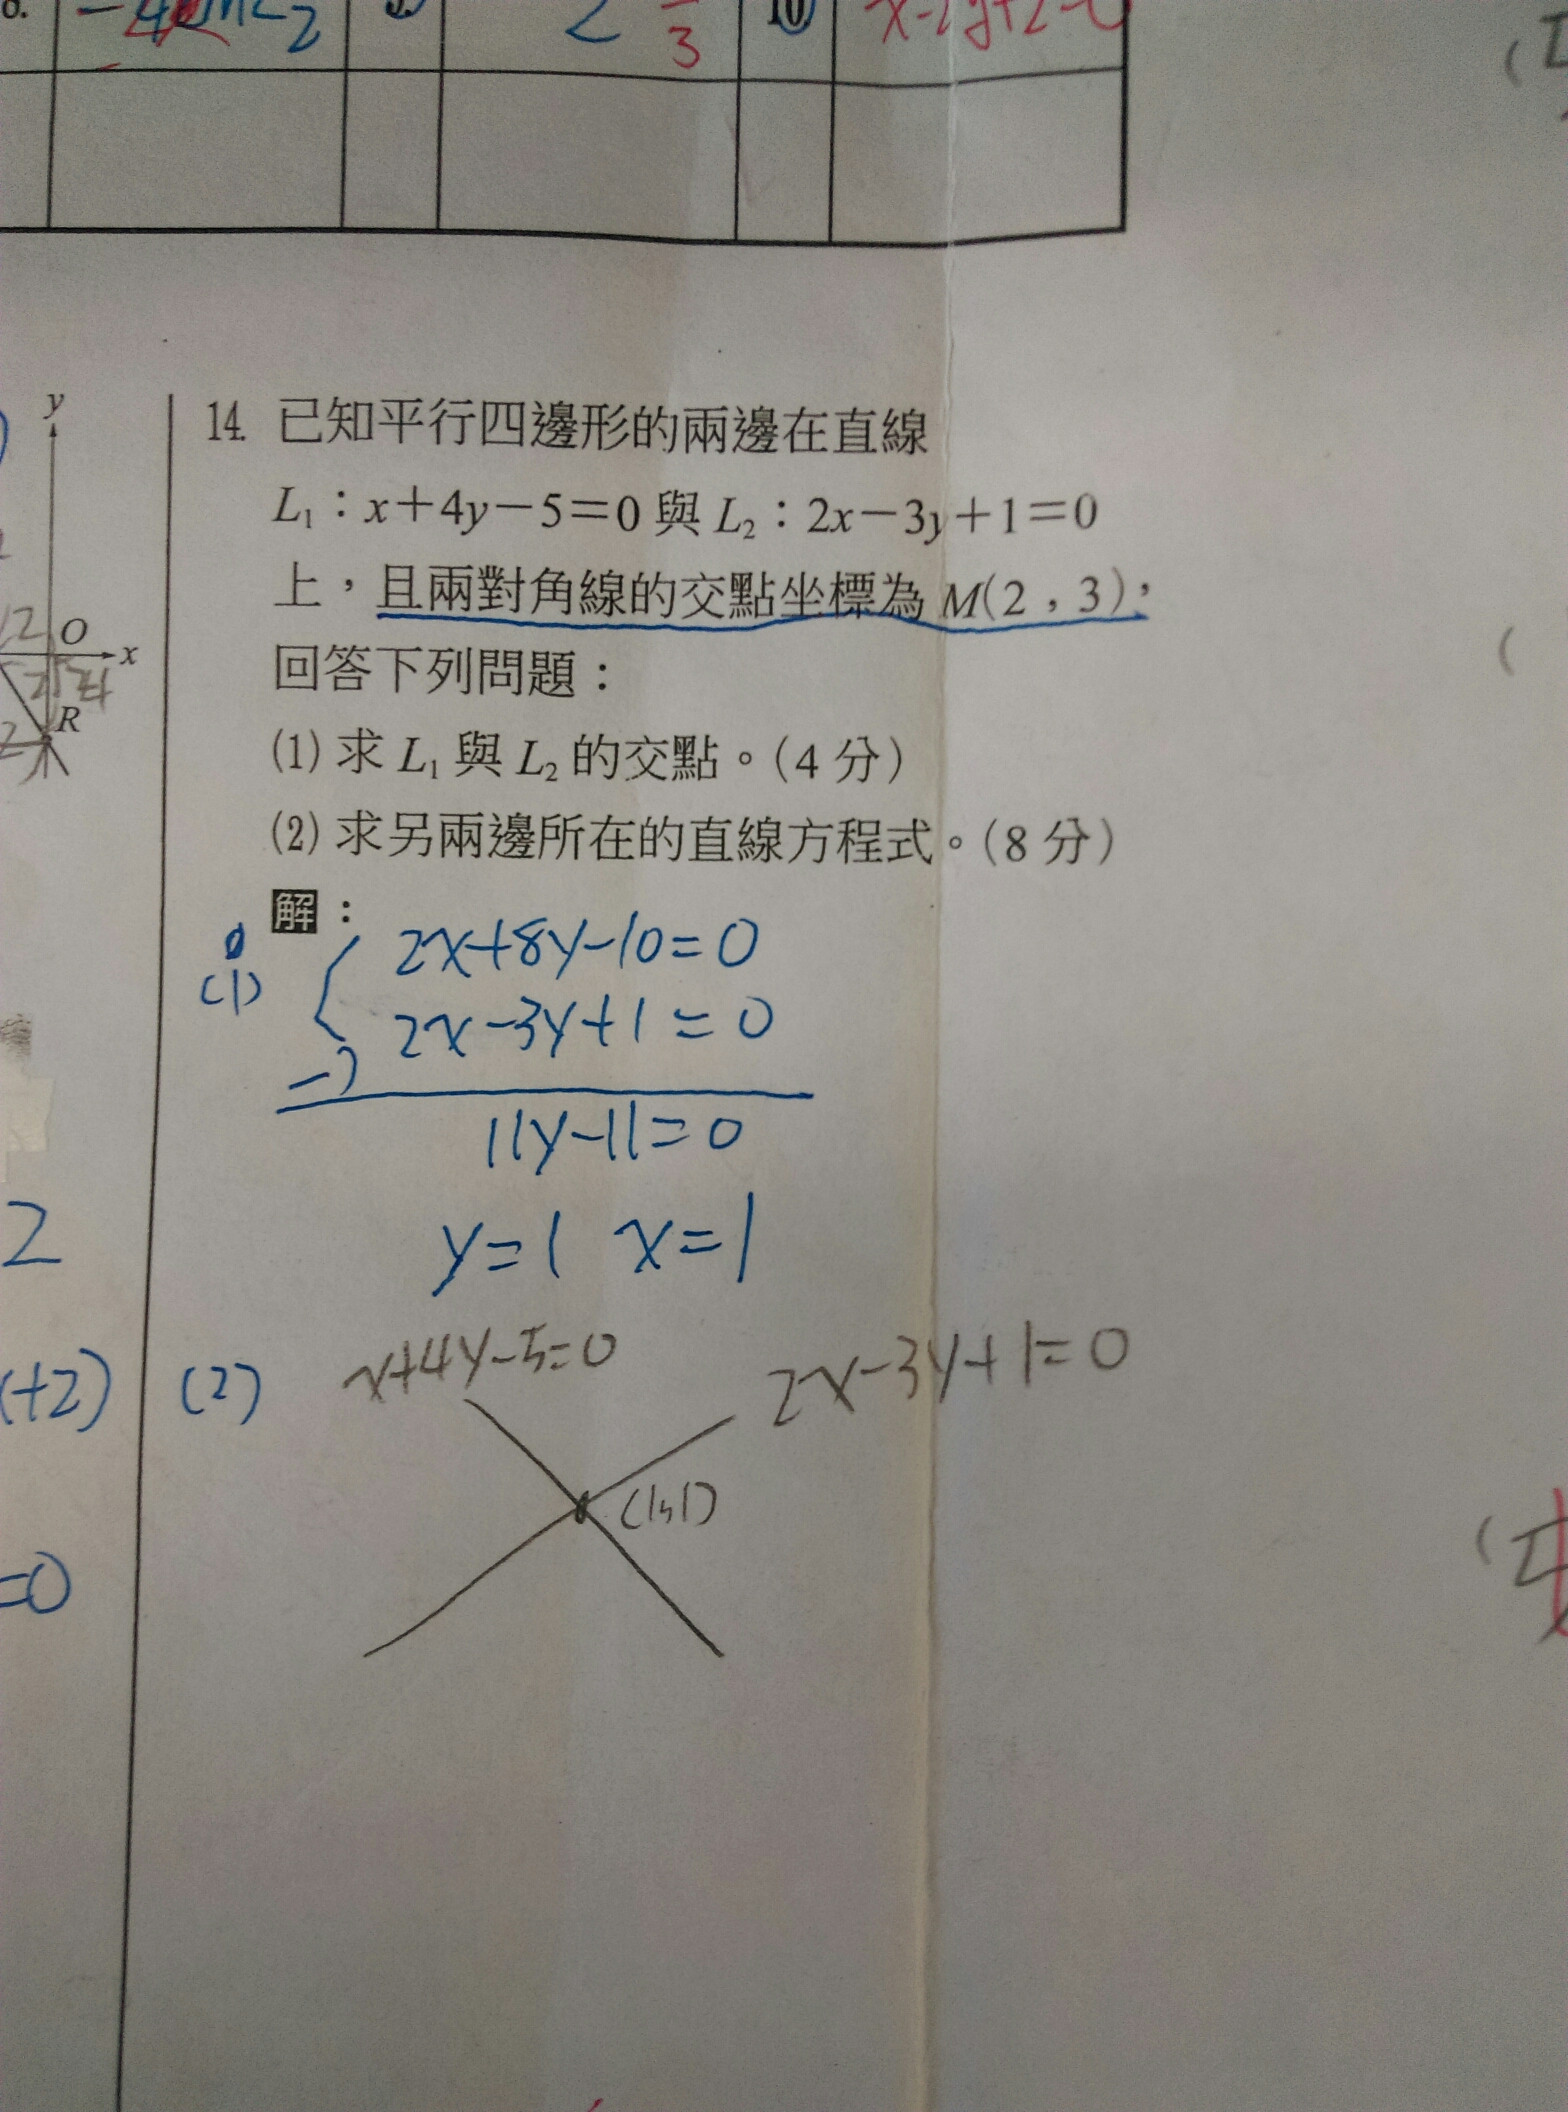 8.
2
3
10
y
O
x
R
14. 已知平行四邊形的兩邊在直線
L₁：x＋4y－5＝0 與 L₂：2x－3y＋1＝0
上，且兩對角線的交點坐標為 M(2，3)，
回答下列問題：
(1) 求 L₁ 與 L₂ 的交點。(4 分)
(2) 求另兩邊所在的直線方程式。(8 分)
解：
(1) 2x+8y-10=0
2x-3y+1=0
11y-11=0
y=1 x=1
2
+2)
(2) x+4y-5=0 2x-3y+1=0
(1,1)
=0